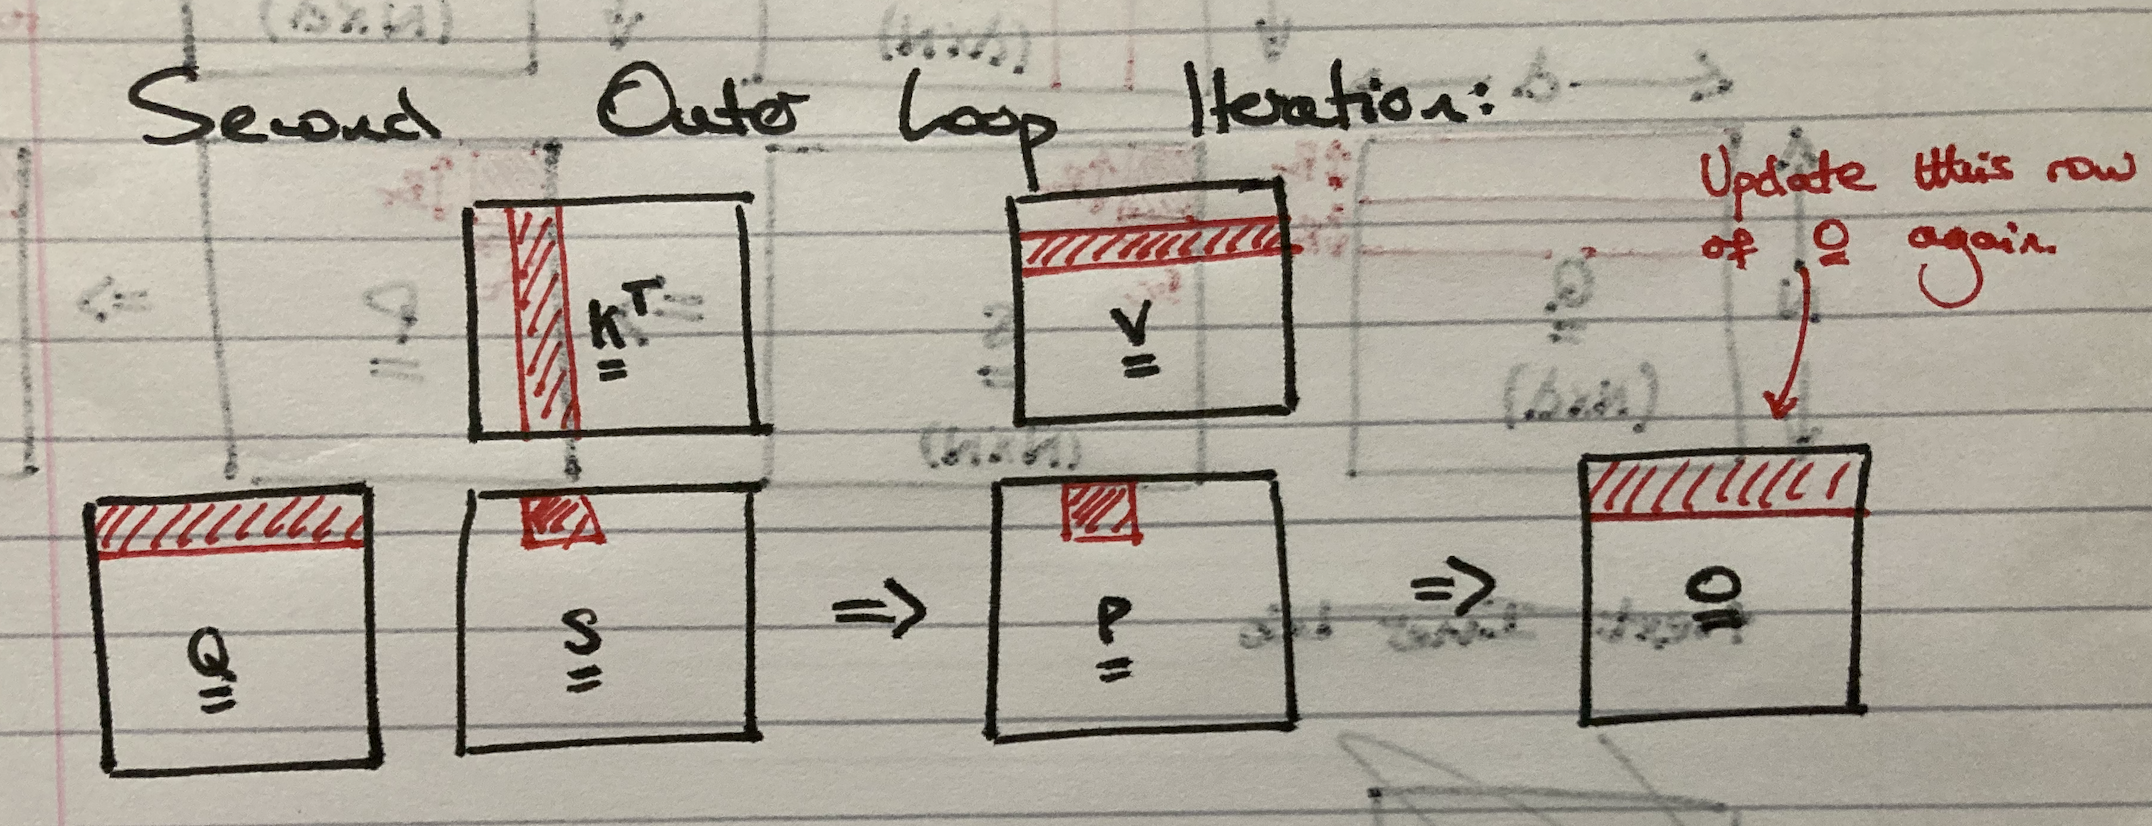 Second Outer Loop Iteration:
Update this row
of O again.
K^T
V
Q
S
=>
P
=>
O